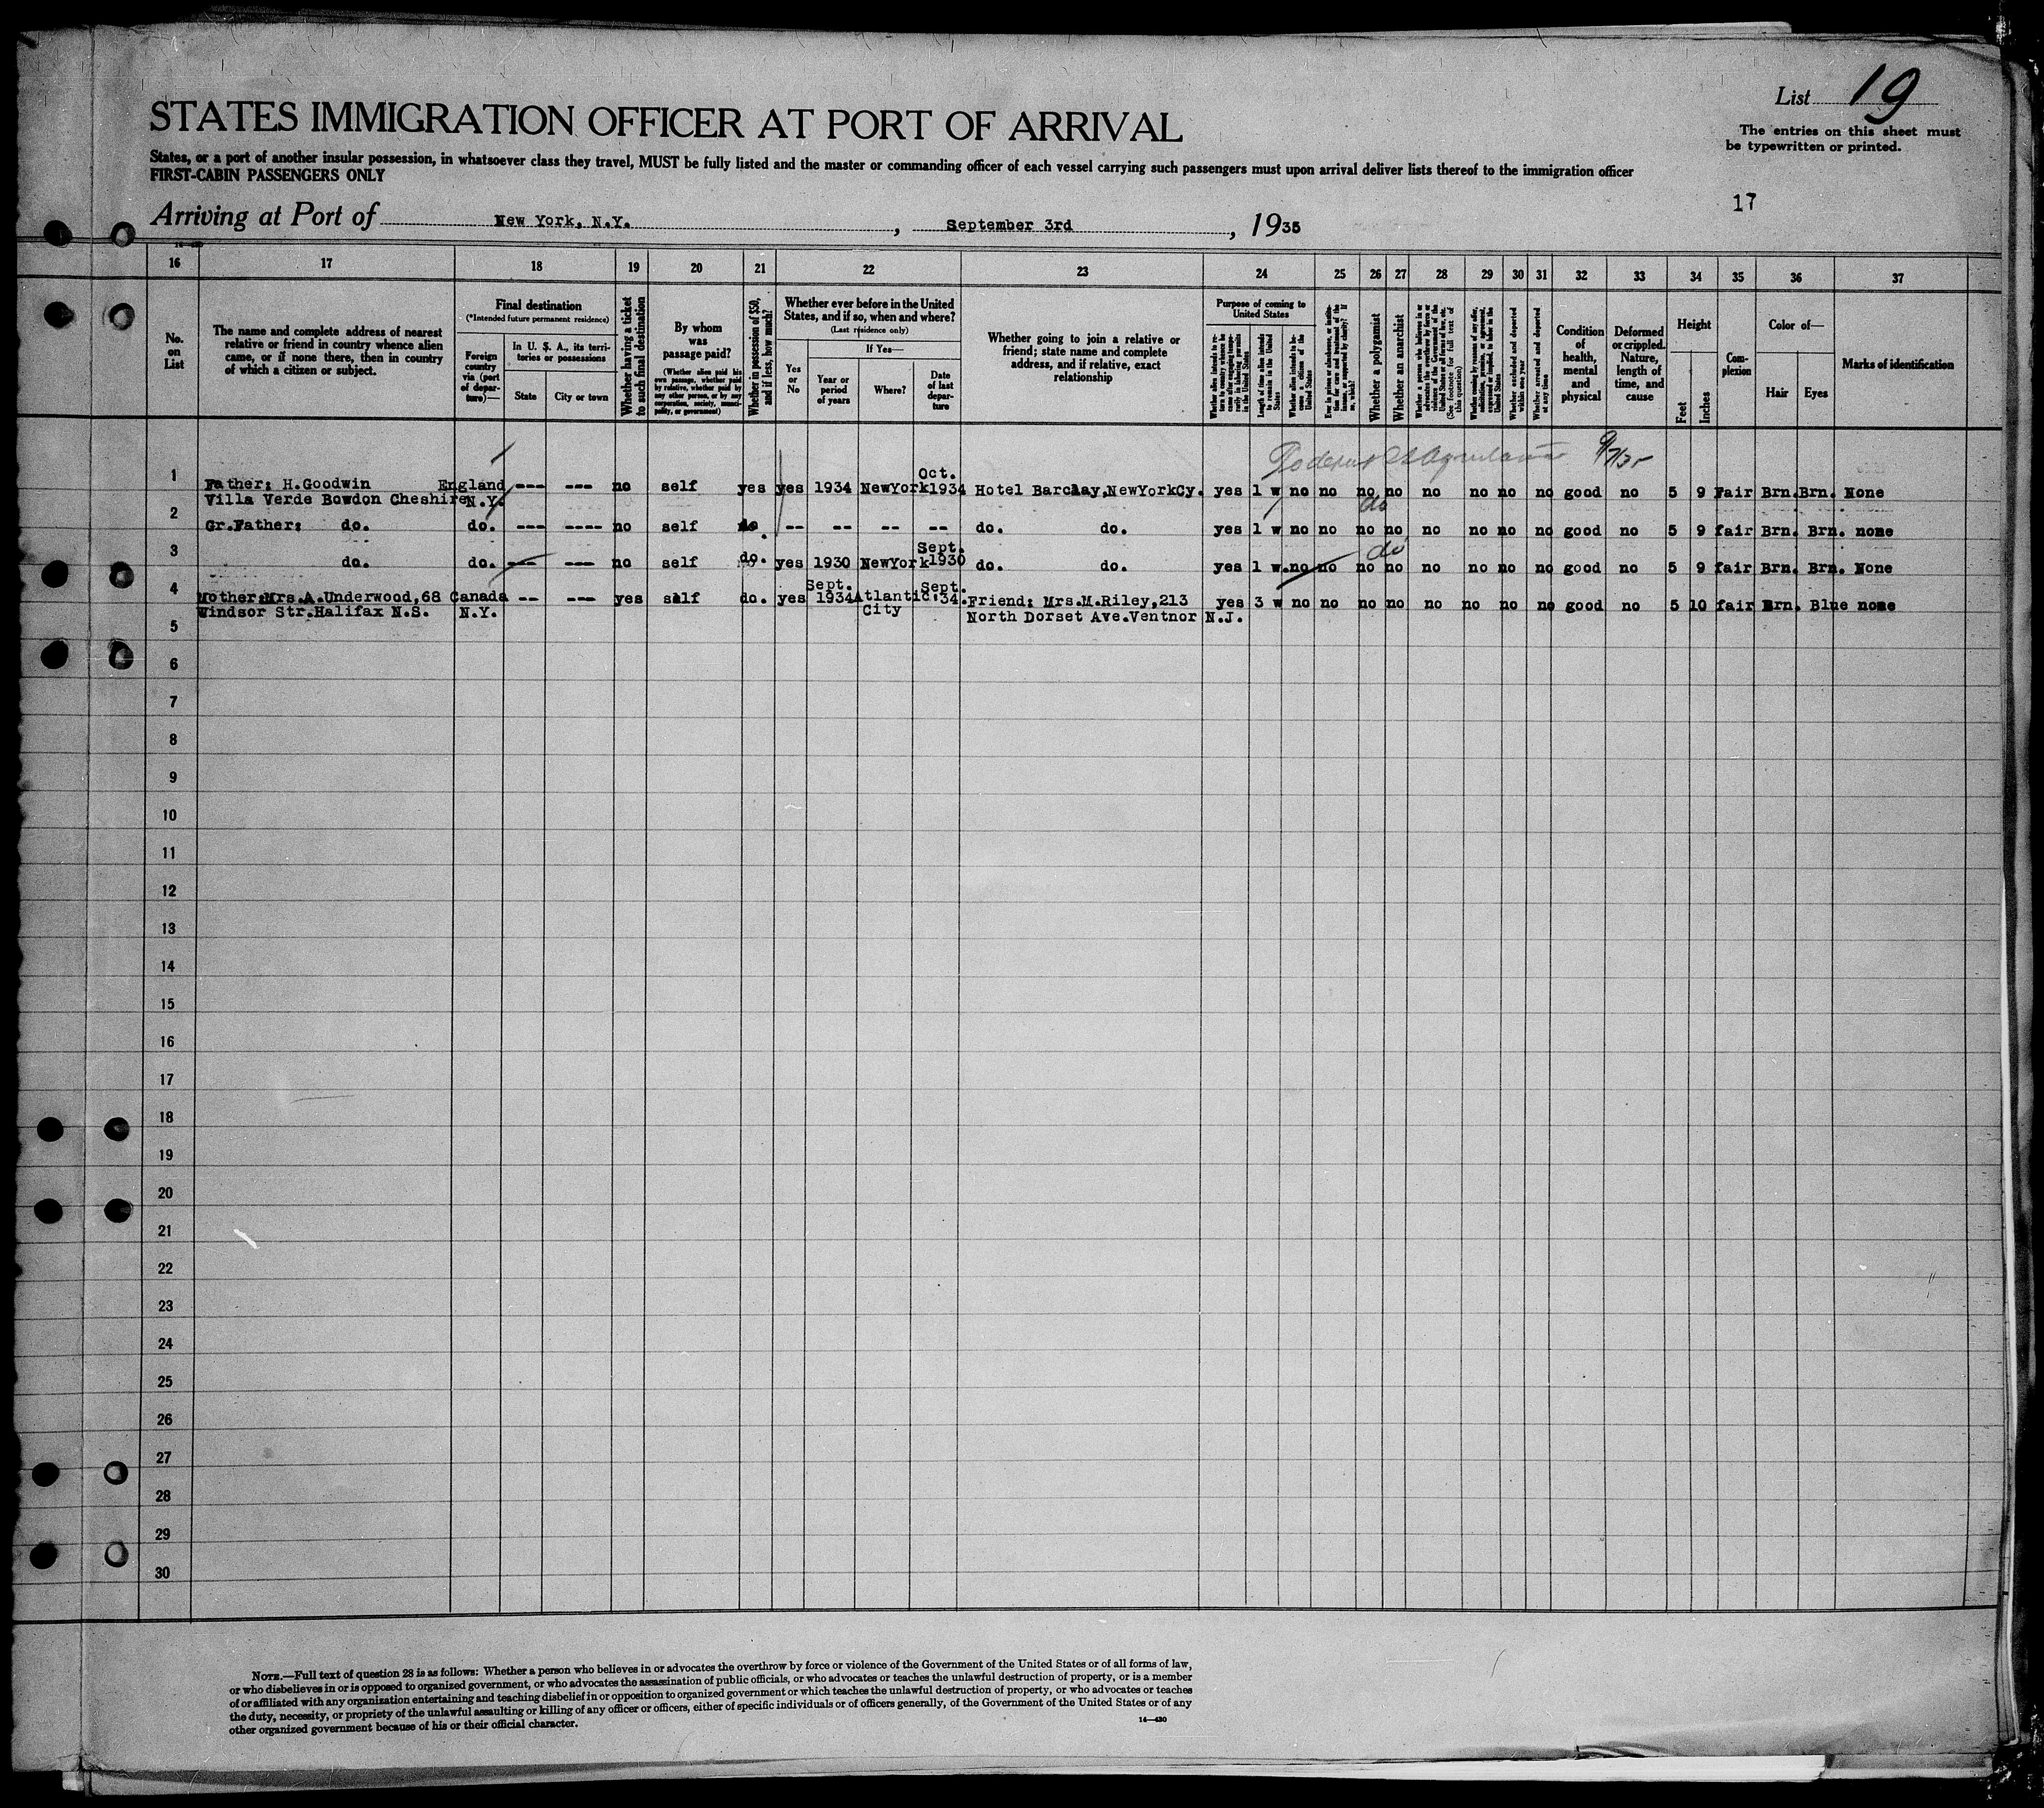 List 19
STATES IMMIGRATION OFFICER AT PORT OF ARRIVAL
The entries on this sheet must
be typewritten or printed.
States, or a port of another insular possession, in whatsoever class they travel, MUST be fully listed and the master or commanding officer of each vessel carrying such passengers must upon arrival deliver lists thereof to the immigration officer
FIRST-CABIN PASSENGERS ONLY
17
Arriving at Port of New York, N.Y. , September 3rd , 1935
16 17 18 19 20 21 22 23 24 25 26 27 28 29 30 31 32 33 34 35 36 37
No.
on
List
The name and complete address of nearest
relative or friend in country whence alien
came, or if none there, then in country
of which a citizen or subject.
Final destination
(*Intended future permanent residence)
Foreign
country
via (port
of depar-
ture)—
In U. S. A., its terri-
tories or possessions
State
City or town
Whether having a ticket
to such final destination
By whom
was
passage paid?
(Whether alien paid his
own passage, whether paid
by relative, whether paid by
any other person, or by any
corporation, society, munici-
pality, or government)
Whether in possession of $50,
and if less, how much?
Whether ever before in the United
States, and if so, when and where?
(Last residence only)
Yes
or
No
If Yes—
Year or
period
of years
Where?
Date
of last
depar-
ture
Whether going to join a relative or
friend; state name and complete
address, and if relative, exact
relationship
Purpose of coming to
United States
Length of time alien intends
to remain in the United
States
Whether a polygamist
Whether an anarchist
Whether excluded and deported
within one year
Whether arrested and deported
at any time
Condition
of
health,
mental
and
physical
Deformed
or crippled.
Nature,
length of
time, and
cause
Height
Feet
Inches
Com-
plexion
Color of—
Hair
Eyes
Marks of identification
1 Father: H.Goodwin England --- --- no self yes yes 1934 NewYork Oct. 1934 Hotel Barclay,NewYorkCy. yes 1 w no no no no no no no no good no 5 9 Fair Brn. Brn. None
Villa Verde Bowdon Cheshire N.Y.
2 Gr.Father: do. do. --- ---- no self do. -- -- -- -- do. do. yes 1 w no no no no no no no no good no 5 9 fair Brn. Brn. none
do
3 do. do. --- --- no self do. yes 1930 NewYork Sept. 1930 do. do. yes 1 w. no no no no no no no no good no 5 9 fair Brn. Brn. None
do
4 Mother:Mrs.A.Underwood,68 Canada -- --- yes self do. yes Sept. 1934 Atlantic City Sept. '34. Friend: Mrs.M.Riley,213 yes 3 w no no no no no no no no good no 5 10 fair Brn. Blue none
Windsor Str.Halifax N.S. N.Y. North Dorset Ave.Ventnor N.J.
5
6
7
8
9
10
11
12
13
14
15
16
17
18
19
20
21
22
23
24
25
26
27
28
29
30
NOTE.—Full text of question 28 is as follows: Whether a person who believes in or advocates the overthrow by force or violence of the Government of the United States or of all forms of law,
or who disbelieves in or is opposed to organized government, or who advocates the assassination of public officials, or who advocates or teaches the unlawful destruction of property, or is a member
of or affiliated with any organization entertaining and teaching disbelief in or opposition to organized government or which teaches the unlawful destruction of property, or who advocates or teaches
the duty, necessity, or propriety of the unlawful assaulting or killing of any officer or officers, either of specific individuals or of officers generally, of the Government of the United States or of any
other organized government because of his or their official character.
14—430